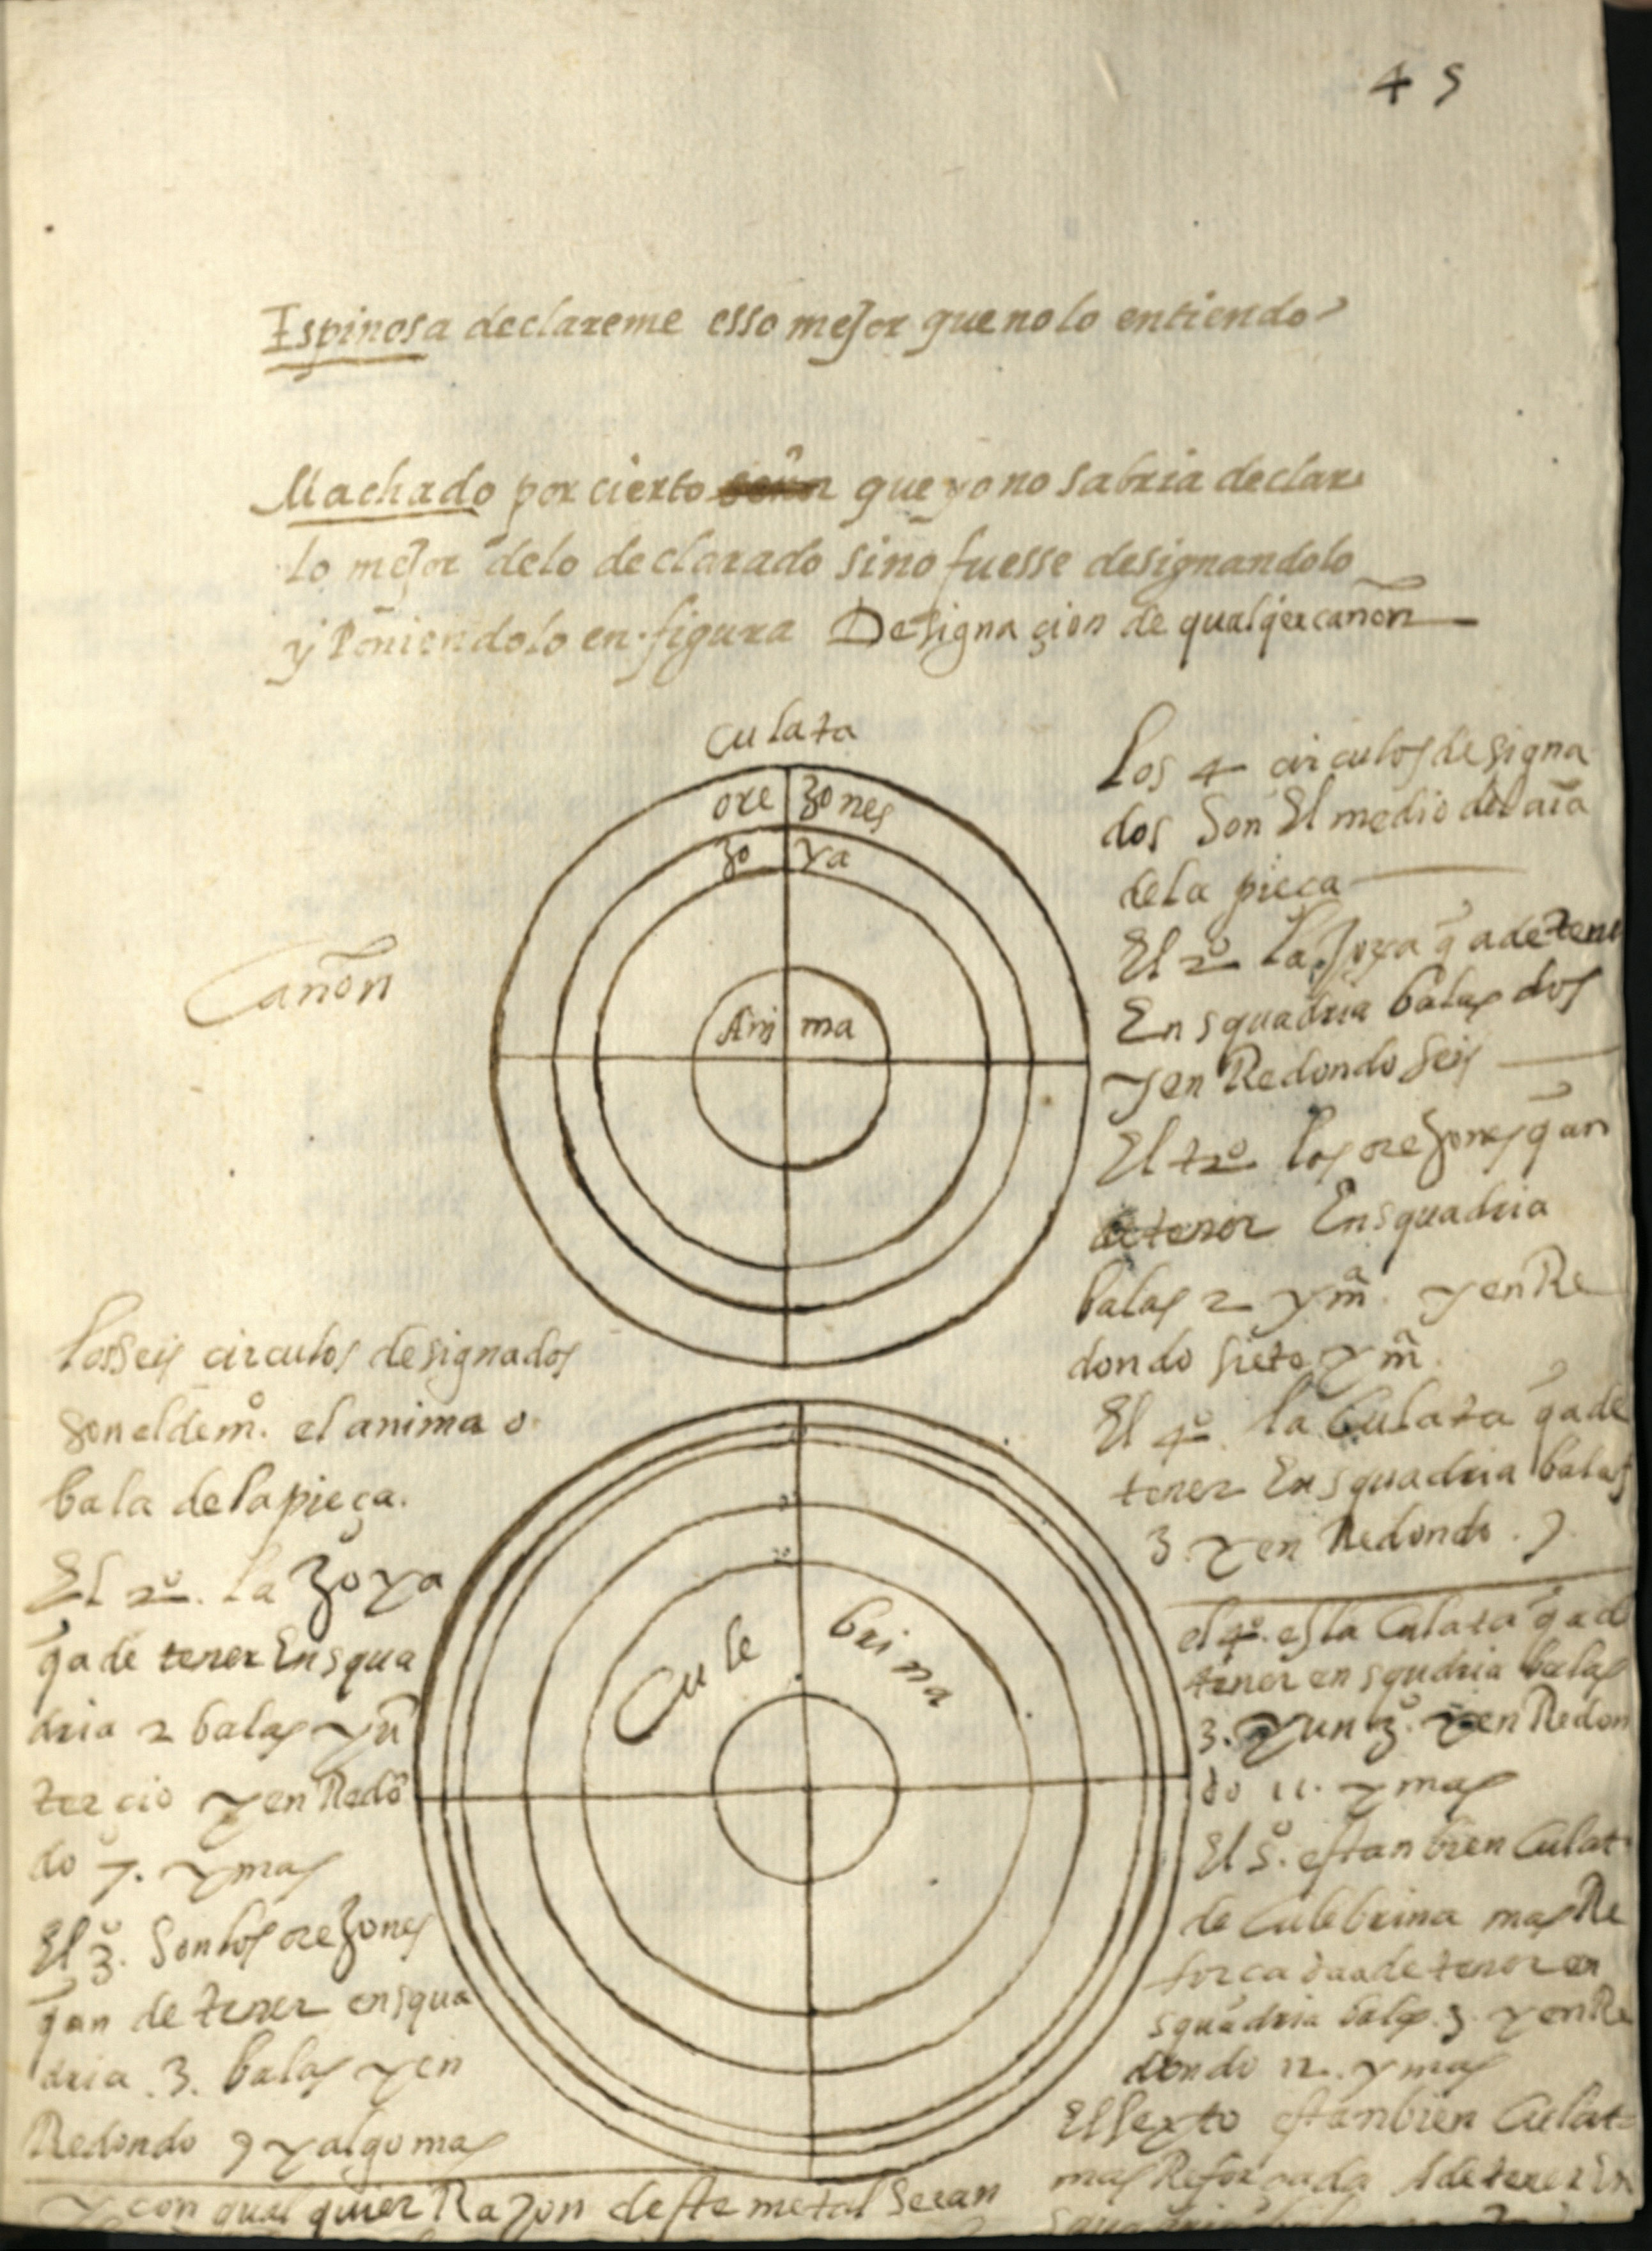 45
Espinosa declareme esso mejor que no lo entiendo
Machado por cierto que yo no sabria declar
lo mejor delo declarado sino fuesse designandolo
y Poniendolo en figura Designaçion de qualqer cañon
culata
ore zones
zo ya
Ani ma
Cañon
Los 4 circulos designa
dos Son El medio del aĩa
dela pieca
El 2º la Joya q̃ a de tener
En squadria balas dos
y en Redondo seis
El 3º los orezones q̃ an
de tener En squadria
balas 2 y mª. y en Re
dondo siete y mª.
El 4º. la Culata q̃ a de
tener En squadria balas
3. y en Redondo. 9.
Los seis circulos designados
son el de mº. el anima o
bala de la pieça.
El 2º. la zoya
q̃a de tener En squa
dria 2 balas y ũ
tercio y en Redõ
do 7. y mas
El 3º. Son los orezones
q̃ an de tener en squa
dria .3. balas y en
Redondo 9 y algo mas
Cule brina
el 4º. es la Culata q̃ a d
tener en squdria balas
3. y un 3º. y en Redon
do 11. y mas
El 5º. es tanbien Culat
de Culebrina mas Re
forcada a de tener en
squadria balas. 3. y en Re
dondo 12. y mas
El sexto es tanbien Culat
mas Reforcada de tener En
y con qual quier Razon deste metal Seran